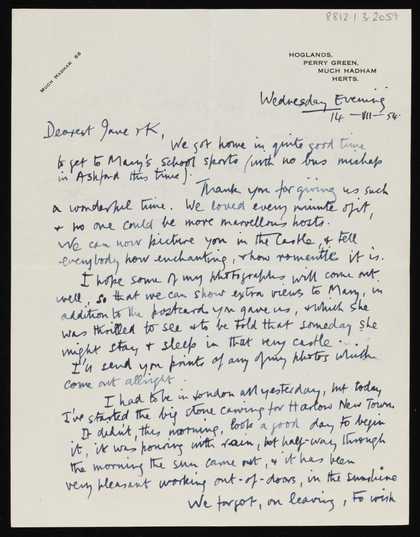 8812.1.3.2059
MUCH HADHAM 66
HOGLANDS,
PERRY GREEN,
MUCH HADHAM
HERTS.
Wednesday Evening
14 - VII - 54.
Dearest Jane & K,
We got home in quite good time
to get to Mary's school sports (with no bus mishap
in Ashford this time).
Thank you for giving us such
a wonderful time. We loved every minute of it,
& no one could be more marvellous hosts.
We can now picture you in the Castle, & tell
everybody how enchanting, & how romantic it is.
I hope some of my photographs will come out
well, so that we can show extra views to Mary, in
addition to the postcard you gave us, & which she
was thrilled to see & to be told that someday she
might stay & sleep in that very castle - . . .
I'll send you prints of any of my photos which
come out allright.
I had to be in London all yesterday, but today
I've started the big stone carving for Harlow New Town.
It didn't, this morning, look a good day to begin
it, it was pouring with rain, but half-way through
the morning the sun came out, & it has been
very pleasant working out-of-doors, in the sunshine
We forgot, on leaving, to wish